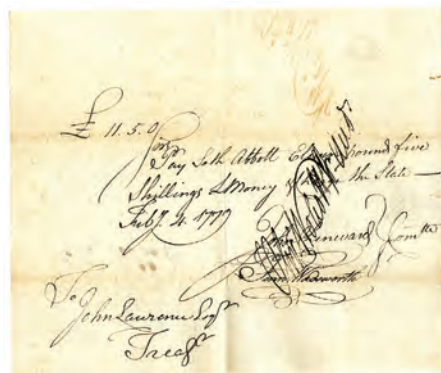 £ 11.5.0
Sir
Pay Seth Abbott Eleven pound five
Shillings L Money & the State
Feby. 4. 1779
Comtte
Wadsworth
To
John Lawrence Esqr
Treasr